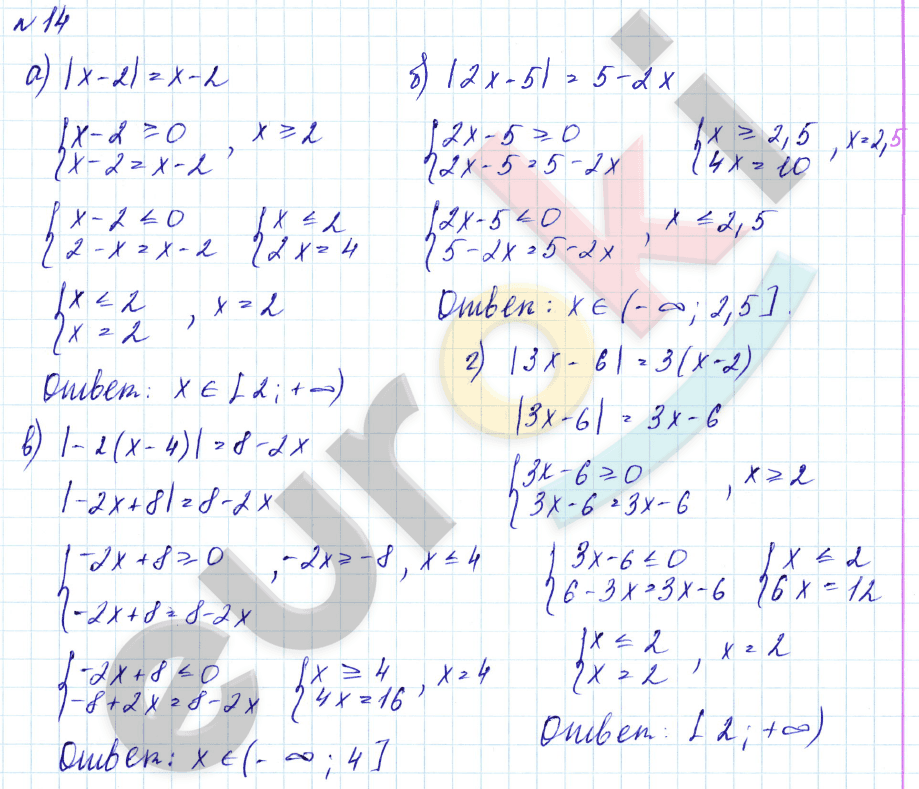 № 14
а) |x-2| = x-2
{x-2 ≥ 0
{x-2 = x-2 , x ≥ 2
{x-2 ≤ 0
{2-x = x-2
{x ≤ 2
{2x = 4
{x ≤ 2
{x = 2 , x = 2
Ответ: x ∈ [2; +∞)
б) |2x-5| = 5-2x
{2x-5 ≥ 0
{2x-5 = 5-2x
{x ≥ 2,5
{4x = 10 , x = 2,5
{2x-5 ≤ 0
{5-2x = 5-2x , x ≤ 2,5
Ответ: x ∈ (-∞; 2,5].
в) |-2(x-4)| = 8-2x
|-2x+8| = 8-2x
{-2x+8 ≥ 0 , -2x ≥ -8 , x ≤ 4
{-2x+8 = 8-2x
{-2x+8 ≤ 0
{-8+2x = 8-2x
{x ≥ 4
{4x = 16 , x = 4
Ответ: x ∈ (-∞; 4]
г) |3x-6| = 3(x-2)
|3x-6| = 3x-6
{3x-6 ≥ 0
{3x-6 = 3x-6 , x ≥ 2
{3x-6 ≤ 0
{6-3x = 3x-6
{x ≤ 2
{6x = 12
{x ≤ 2
{x = 2 , x = 2
Ответ: [2; +∞)
euroki